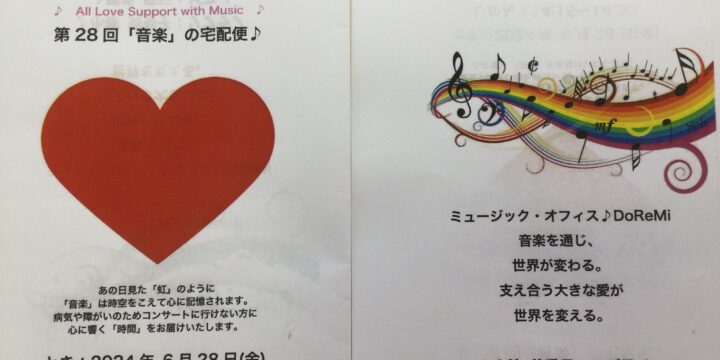 ♪ All Love Support with Music ♪
第28回「音楽」の宅配便♪
あの日見た「虹」のように
「音楽」は時空をこえて心に記憶されます。
病気や障がいのためコンサートに行けない方に
心に響く「時間」をお届けいたします。
とき：2024年 6月28日(金)
mf
ミュージック・オフィス♪DoReMi
音楽を通じ、
世界が変わる。
支え合う大きな愛が
世界を変える。